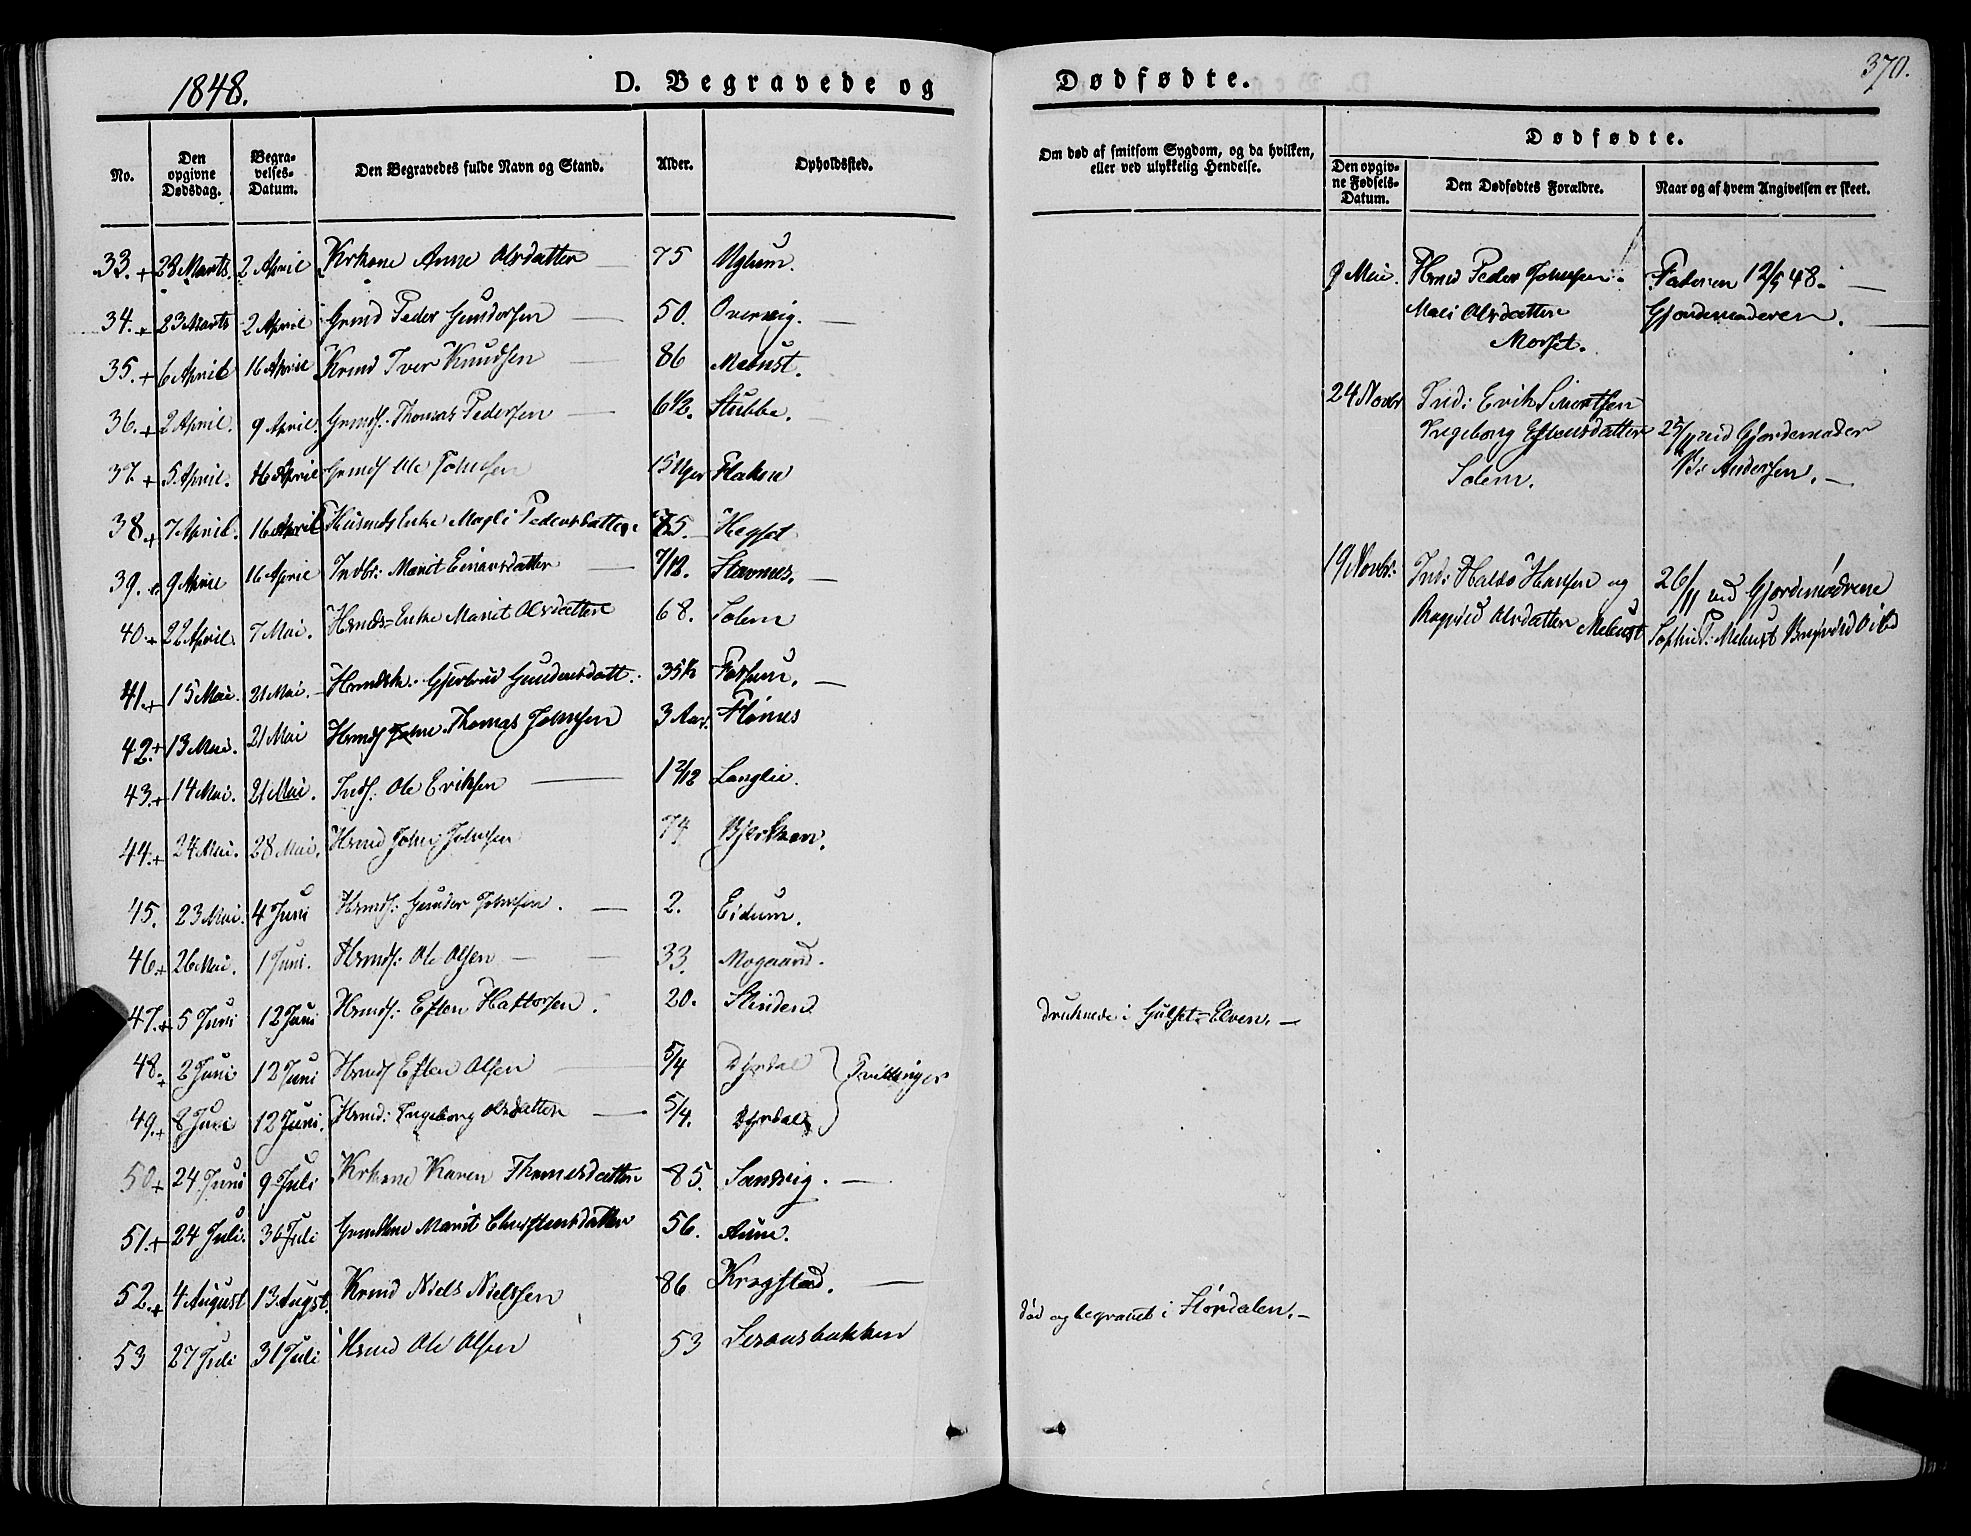 1848.
D. Begravede og
No.
Den opgivne Dødsdag.
Begravelses-Datum.
Den Begravedes fulde Navn og Stand.
Alder.
Opholdssted.
33. + 28 Marts 2 April Krkone Anne Olsdatter 75 Uglum.
34. + 23 Marts 2 April Grmd Peder Gundersen 50. Overvig.
35. + 6 April 16 April Krmd Iver Knudsen 86 Mebust.
36. + 2 April. 9 April. Grmds: Thomas Pedersen 6 1/2. Stubbe.
37. + 5 April. 16 April Grmds Ole Johnsen 15 Uger Flaken
38. + 7 April. 16 April Huusmds Enke Magli Pedersdatter 75. Hegset
39. + 9 April 16 April Indbr: Marit Einarsdatter 7/12. Stavnes.
40. + 22 April. 7 Mai. Hsmds=Enke Marit Olsdatter 68. Solem
41. + 15 Mai. 21 Mai. Hsmdsk: Gjertrud Gundersdatt: 35 1/2 Fossum.
42. + 13 Mai. 21 Mai Hsmds Thomas Johnsen 3 Aar. Flønes
43. + 14 Mai. 21 Mai. Inds: Ole Eriksen 1 2/12 Langlie.
44. + 24 Mai. 28 Mai. Hsmd John Johnsen 74 Bjerkaan.
45. 23 Mai. 4 Juni Hsmds: Gunder Johnsen. 2. Eidum.
46. + 26 Mai. 1 Juni. Hsmds: Ole Olsen 33. Mogaard.
47. + 5 Juni 12 Juni Hsmds: Esten Haftorsen. 20. Slinden
48. + 2 Juni 12 Juni Hsmds Esten Olsen 5/4 Dyrdal } Tvillinger
49. + 8 Juni 12 Juni. Hsmd: Ingeborg Olsdatter 5/4. Dyrdal
50 + 24 Juni 9 Juli Krkone Karen Thomasdatter 85. Sandvig.
51. + 24 Juli. 30 Juli Grmdkne Marit Christensdatter 56. Aune.
52. + 4 August 13 Augst. Krmd Niels Nielssen 86 Krogstad.
53 27 Juli 31 Juli Hsmd Ole Olsen 53
370.
Dødfødte.
Om død af smitsom Sygdom, og da hvilken, eller ved ulykkelig Hendelse.
Dødfødte.
Den opgivne Fødsels-Datum.
Den Dødfødtes Forældre.
Naar og af hvem Angivelsen er skeet.
9 Mai. Hsmd Peder Johnsen. Faderen 12/5 48.
Mali Olsdatter Gjordemoderen.
Morset.
24 Novbr Ind: Erik Sivertsen
Ingeborg Estensdatter 25/11 ved Gjordemoder
Solem. Andersen.
19 Novbr: Ind: Haldo Hansen og 26/11 ved Gjordemødrene
Ragnild Olsdatter Mebust Mebust
druknede i Gulset=Elven.
død og begravet i Størdalen.